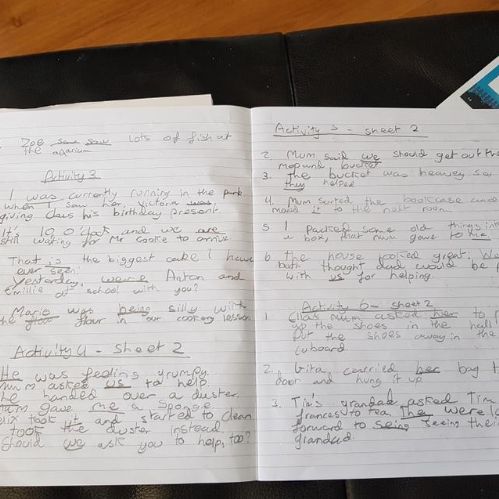 Zoe saw saw lots of fish at
the aqarium
Activity 3
I was currently running in the park
when I saw her, Victoria was
giving Claus his birthday present.
It's 10 O'clock and we are
still waiting for Mr Cookie to arrive
That is the biggest cake I have
ever seen.
Yesterday, were Anton and
at school with you?
Mario was being silly with
the flour in our cookery lesson
Activity 4 - Sheet 2
He was feeling grumpy.
Mum asked us to help.
he handed over a duster.
Mum gave me a sponge
took it and started to clean
took the duster instead
Should we ask you to help, too?
Activity 5 - sheet 2
2. Mum said we should get out the
mop and bucket
3. The bucket was heavy so
they helped
4. Mum sorted the bookcase
moved it to the next room
5 I packed some old things in
a box, that mum gave to me
6 the house looked great. We
both thought dad would be
with us for helping
Activity 6 - sheet 2
1 Clas mum asked her to
up the shoes in the hall
Put the shoes away in the
cuboard.
2. Gita carried her bag
door and hung it up
3. Tim's grandad asked Tim
frances to tea. They were
forward to seing seeing their
grandad.